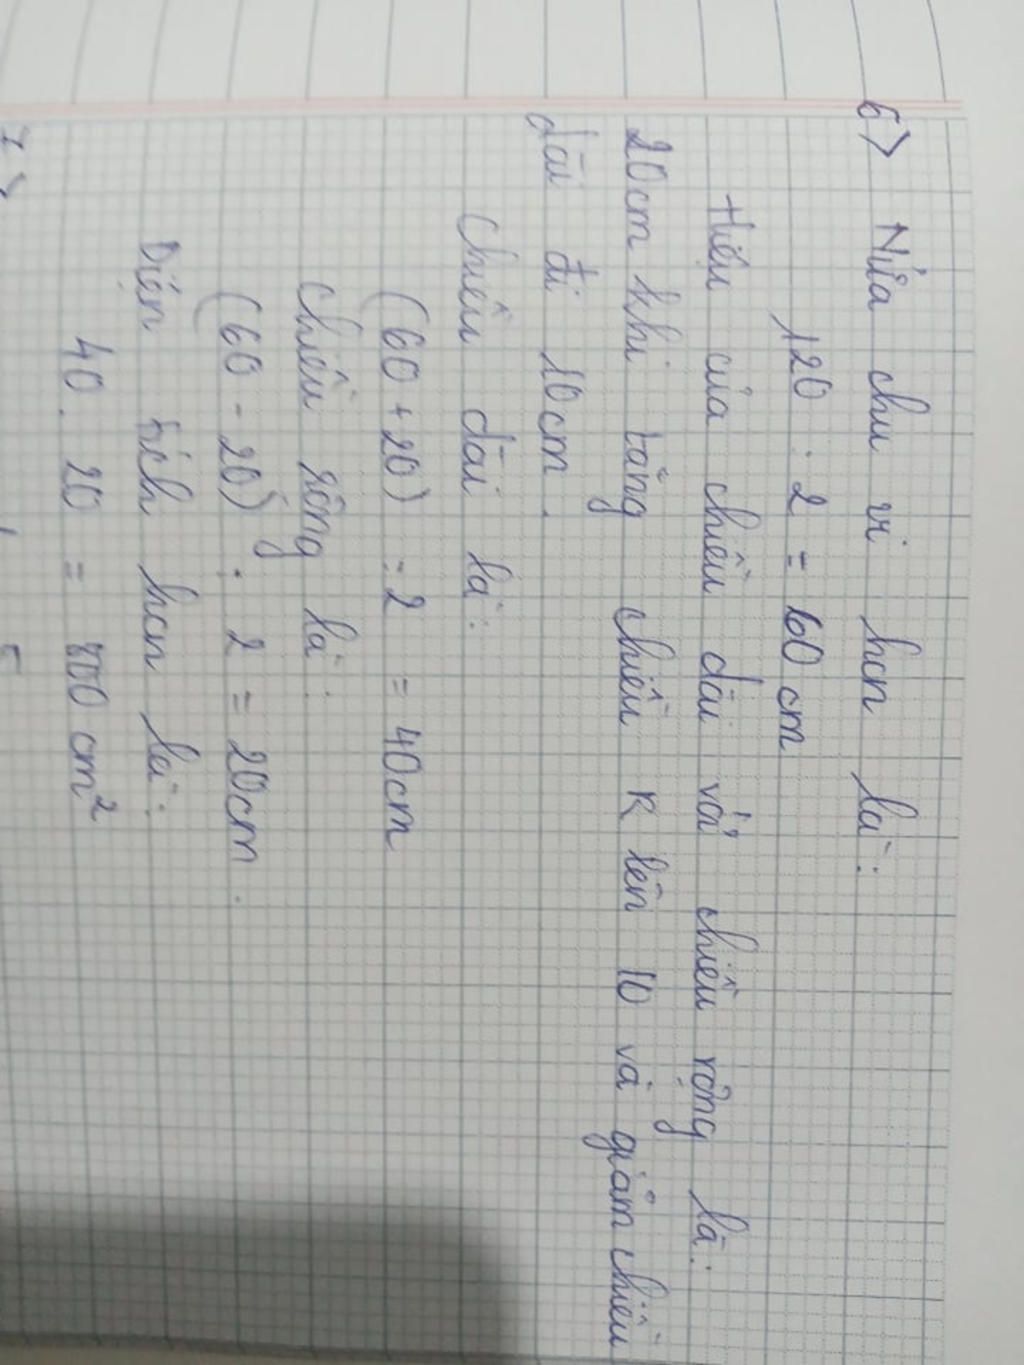 6> Nửa chu vi hcn là:
120 : 2 = 60 cm
Hiệu của chiều dài với chiều rộng là:
20cm khi tăng chiều R lên 10 và giảm chiều
dài đi 10cm.
Chiều dài là:
(60 + 20) : 2 = 40cm
Chiều rộng là:
(60 - 20) : 2 = 20cm.
Diện tích hcn là:
40 . 20 = 800 cm²
7>